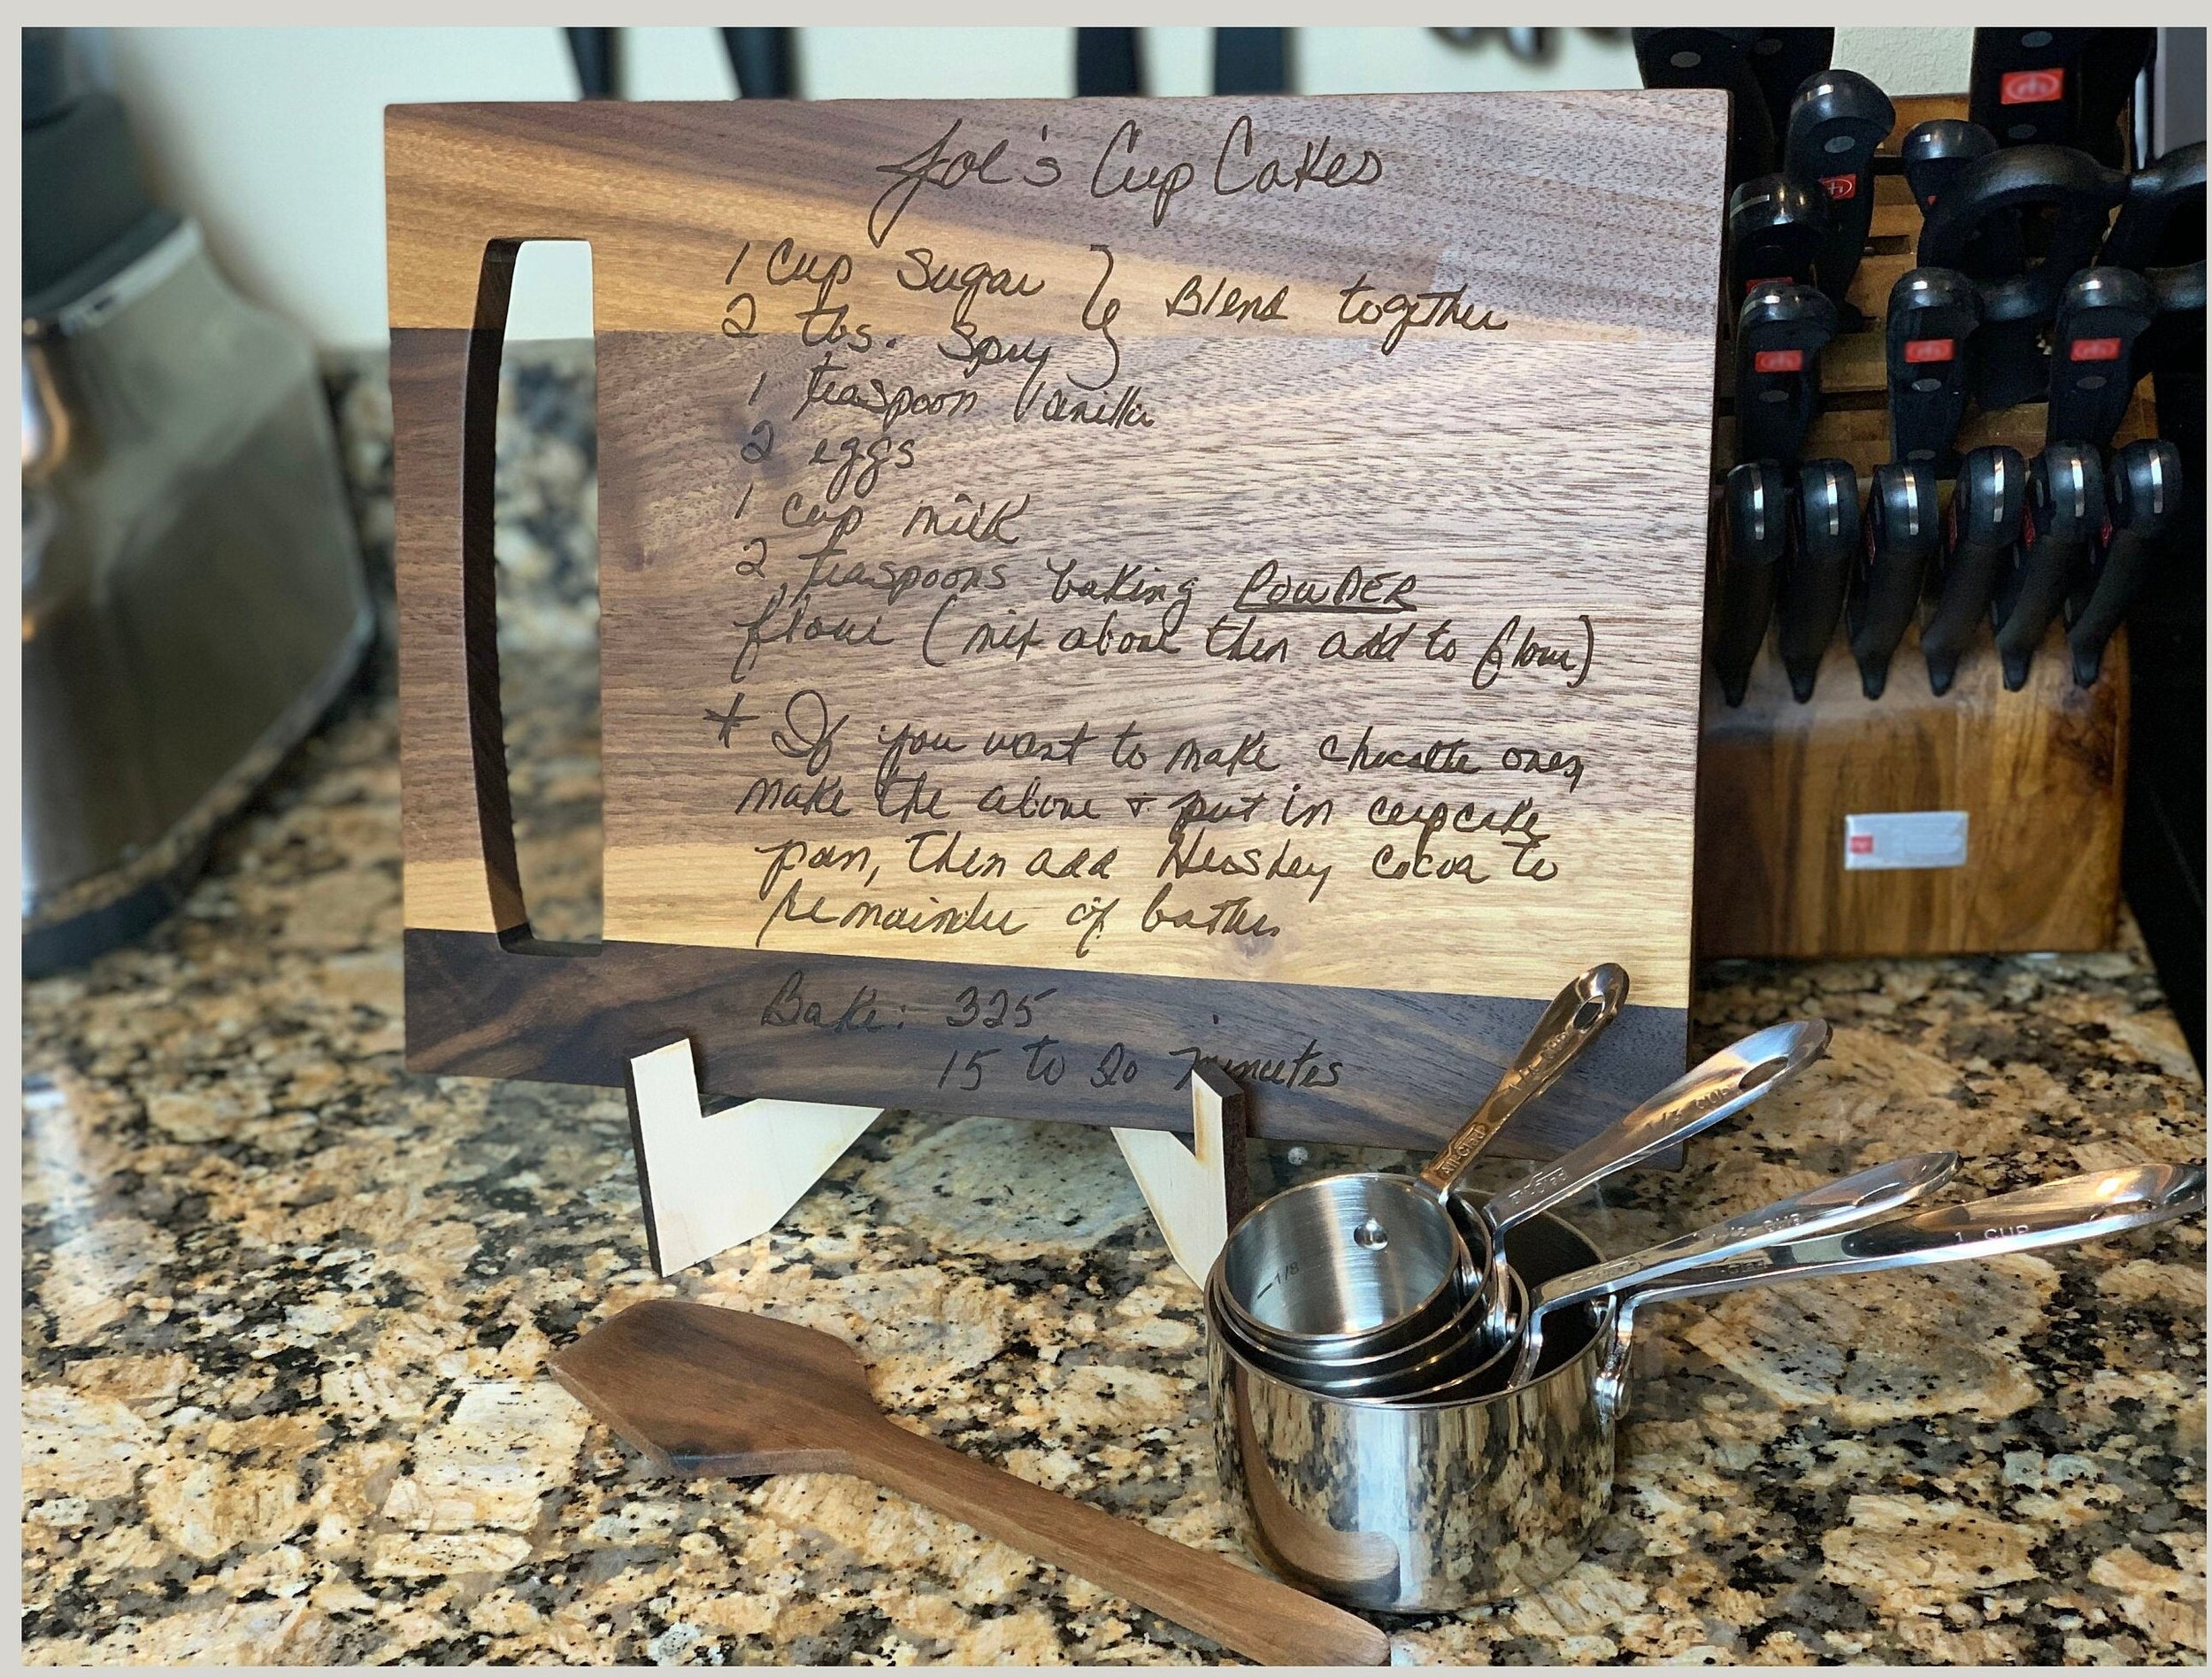 Joe's Cup Cakes
1 Cup Sugar } Blend together
2 tbs. Spry
1 teaspoon Vanilla
2 eggs
1 cup milk
2 teaspoons baking POWDER
flour (mix above then add to flour)
* If you want to make chocolate ones,
make the above + put in cupcake
pan, then add Hershey cocoa to
remainder of batter.
Bake: 325
15 to 20 minutes
1/3 CUP
1/2 CUP
1 CUP
1/8